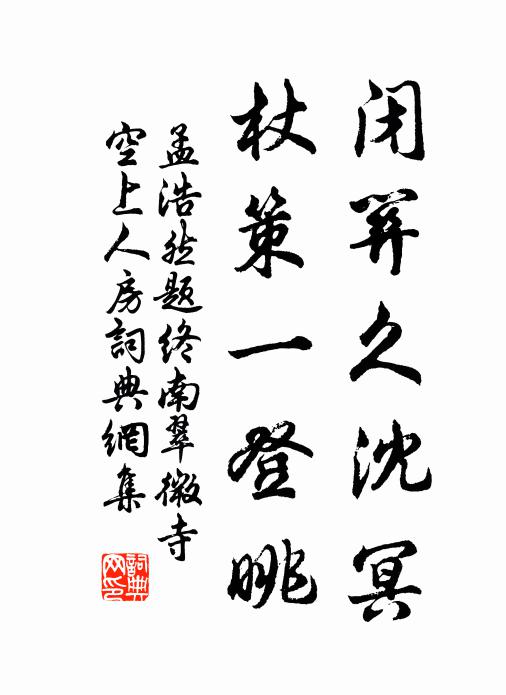 闭關久沈冥
杖策一登眺
孟浩然题终南翠微寺
空上人房詞典網集
詞典
网印